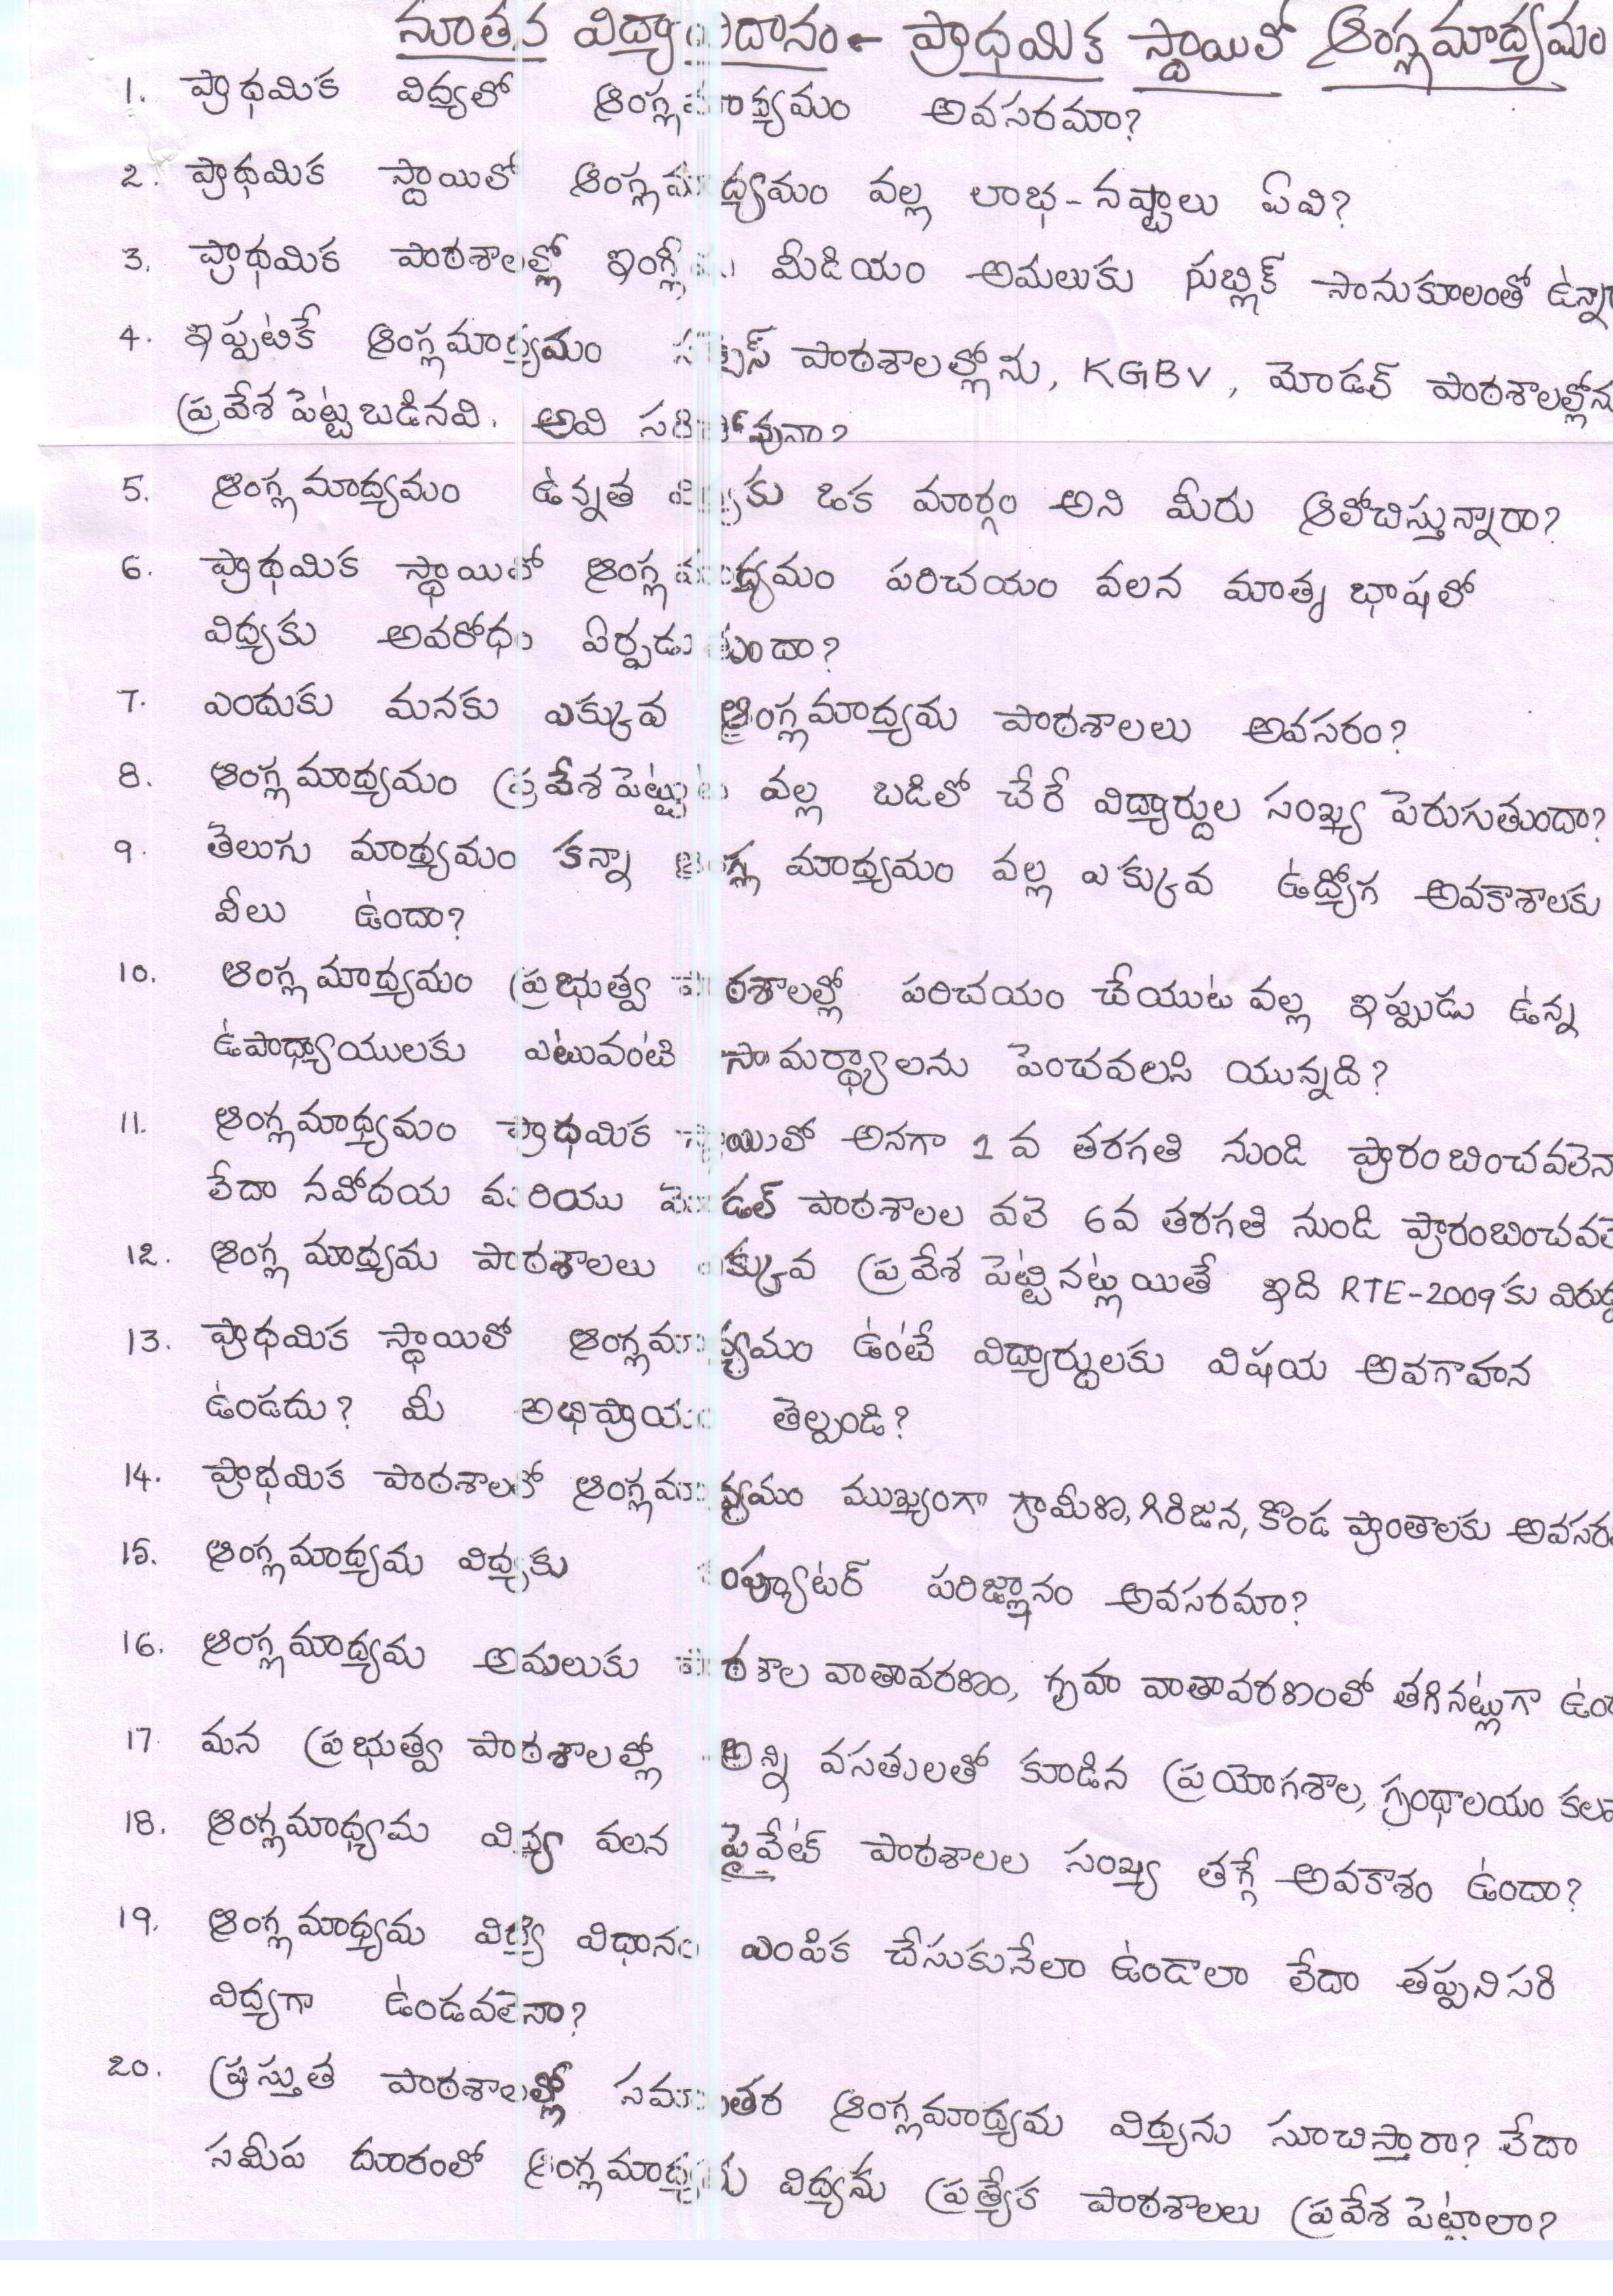 నూతన విద్యావిదానం - ప్రాధమిక స్థాయిలో ఆంగ్లమాధ్యమం
1. ప్రాథమిక విద్యలో ఆంగ్లమాధ్యమం అవసరమా?
2. ప్రాథమిక స్థాయిలో ఆంగ్లమాధ్యమం వల్ల లాభ-నష్టాలు ఏవి?
3. ప్రాథమిక పాఠశాలల్లో ఇంగ్లీషు మీడియం అమలుకు పబ్లిక్ సానుకూలంతో
4. ఇప్పటికే ఆంగ్లమాధ్యమం సక్సెస్ పాఠశాలల్లోను, KGBV, మోడల్ పాఠశాలల్లోను
ప్రవేశపెట్టబడినవి. అవి సరిపోవునా?
5. ఆంగ్లమాధ్యమం ఉన్నత విద్యకు ఒక మార్గం అని మీరు ఆలోచిస్తున్నారా?
6. ప్రాథమిక స్థాయిలో ఆంగ్లమాధ్యమం పరిచయం వలన మాతృ భాషలో
విద్యకు అవరోధం ఏర్పడుతుందా?
7. ఎందుకు మనకు ఎక్కువ ఆంగ్లమాధ్యమ పాఠశాలలు అవసరం?
8. ఆంగ్లమాధ్యమం ప్రవేశపెట్టుట వల్ల బడిలో చేరే విద్యార్థుల సంఖ్య పెరుగుతుందా?
9. తెలుగు మాధ్యమం కన్నా ఆంగ్ల మాధ్యమం వల్ల ఎక్కువ ఉద్యోగ అవకాశాలకు
వీలు ఉందా?
10. ఆంగ్లమాధ్యమం ప్రభుత్వ పాఠశాలల్లో పరిచయం చేయుట వల్ల ఇప్పుడు ఉన్న
ఉపాధ్యాయులకు ఎటువంటి సామర్థ్యాలను పెంచవలసి యున్నది?
11. ఆంగ్లమాధ్యమం ప్రాథమిక స్థాయిలో అనగా 1 వ తరగతి నుండి ప్రారంబించవలెనా
లేదా నవోదయ మరియు మోడల్ పాఠశాలల వలె 6వ తరగతి నుండి ప్రారంబించవలె
12. ఆంగ్ల మాధ్యమ పాఠశాలలు ఎక్కువ ప్రవేశ పెట్టినట్లుయితే ఇది RTE-2009కు
13. ప్రాథమిక స్థాయిలో ఆంగ్లమాధ్యమం ఉంటే విద్యార్థులకు విషయ అవగాహన
ఉండదు? మీ అభిప్రాయం తెల్పండి?
14. ప్రాథమిక పాఠశాలలో ఆంగ్లమాధ్యమం ముఖ్యంగా గ్రామీణ, గిరిజన, కొండ ప్రాంతాలకు
15. ఆంగ్లమాధ్యమ విద్యకు కంప్యూటర్ పరిజ్ఞానం అవసరమా?
16. ఆంగ్లమాధ్యమ అమలుకు పాఠశాల వాతావరణం, గృహ వాతావరణంలో తగినట్లుగా
17. మన ప్రభుత్వ పాఠశాలల్లో అన్ని వసతులతో కూడిన ప్రయోగశాల, గ్రంథాలయం
18. ఆంగ్లమాధ్యమ విద్య వలన ప్రైవేట్ పాఠశాలల సంఖ్య తగ్గే అవకాశం ఉందా?
19. ఆంగ్లమాధ్యమ విద్య విధానం ఎంపిక చేసుకునేలా ఉండాలా లేదా తప్పనిసరి
విద్యగా ఉండవలెనా?
20. ప్రస్తుత పాఠశాలల్లో సమాంతర ఆంగ్లమాధ్యమ విద్యను సూచిస్తారా? లేదా
సమీప దూరంలో ఆంగ్లమాధ్యమ విద్యను ప్రత్యేక పాఠశాలలు ప్రవేశపెట్టాలా?